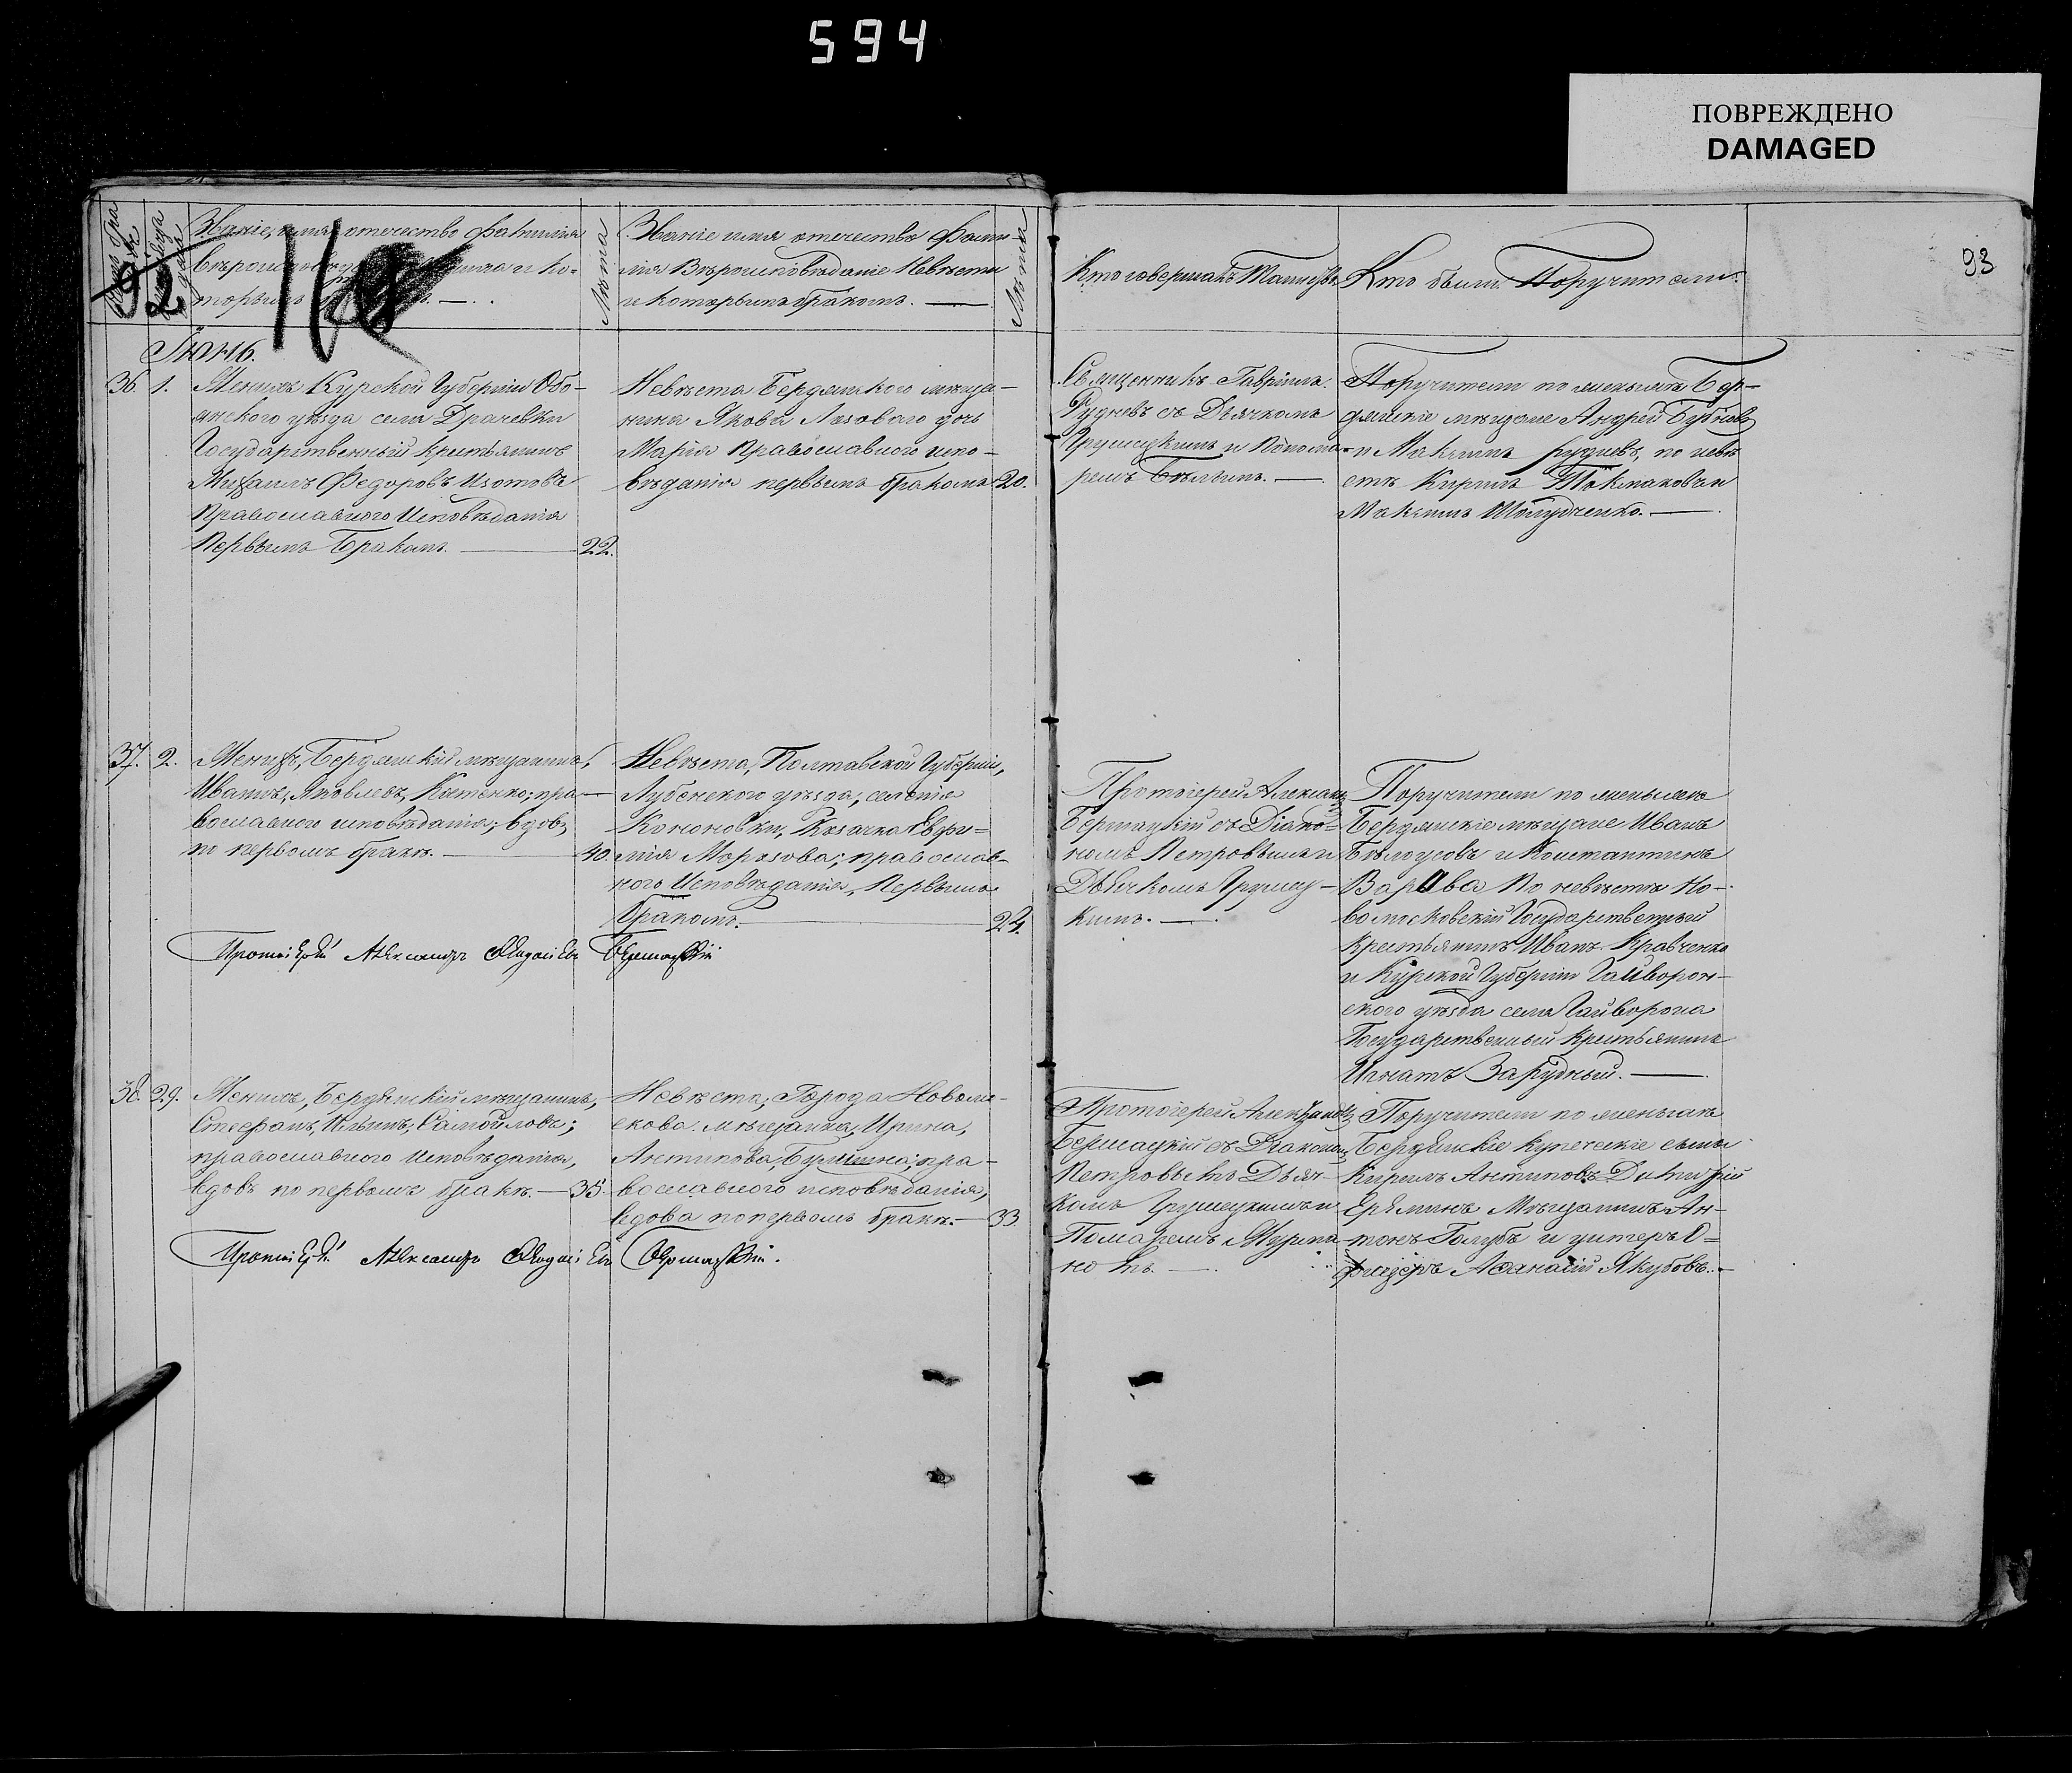 594
ПОВРЕЖДЕНО
DAMAGED
93
92
Званіе, имя, отечество фамилія
торымъ
Лѣта
Званіе имя отечество фами-
лія Вѣроисповѣданіе Невѣсты
и которымъ бракомъ. —
Лѣта
Кто совершалъ Таинство
Кто были Поручители.
Іюнь.
36. 1. Женихъ Курской Губерніи Обо-
янскаго уѣзда села Драчевки
Государственный крестьянинъ
Михаилъ Федоровъ Изотовъ
Православного Исповѣданія
Первымъ Бракомъ. — 22.
Невѣста Бердянского мѣща-
нина Якова Лозоваго дочь
Марія Православного испо-
вѣданія первымъ бракомъ 20.
Священникъ Гавріилъ
Рудневъ съ Дьячкомъ
Грушецкимъ и Понома-
ремъ Бѣлымъ. —
Поручители по женихѣ Бер-
дянскіе мѣщане Андрей Бубновъ
и Максимъ Рудневъ, по невѣ
стѣ Кирилъ Токмаковъ и
Максимъ Шолудченко. —
37. 2. Женихъ, Бердянскій мѣщанинъ,
Иванъ, Яковлевъ, Костенко; пра-
вославного исповѣданія; вдовъ
по первомъ бракѣ. — 40.
Невѣста, Полтавской Губерніи,
Лубенского уѣзда, селенія
Кононовки, Козачка Евфи-
мія Морозова; православ-
ного Исповѣданія, Первымъ
Бракомъ. — 24.
Протоіерей Александръ
Бершацкій съ Діако-
номъ Петровымъ и
Дьячкомъ Грушец-
кимъ. —
Поручители по женихѣ
Бердянскіе мѣщане Иванъ
Бѣлоусовъ и Константинъ
Варава По невѣстѣ Но-
вомосковскій Государственный
Крестьянинъ Иванъ Кравченко
и Курской Губерніи Гайворон-
ского уѣзда села Гайворона
Государственный Крестьянинъ
Игнатъ Зарудный. —
Протоіерей Александръ Бершацкій
38. 29. Женихъ, Бердянскій мѣщанинъ,
Стефанъ, Ильинъ, Самойловъ;
православного Исповѣданія,
вдовъ по первомъ бракѣ. — 35.
Невѣста, Города Новомо-
скова мѣщанка, Ирина,
Антипова, пра-
вославного исповѣданія,
вдова по первомъ бракѣ. — 33.
Протоіерей Александръ
Бершацкій съ Діакономъ
Петровымъ Дьяч-
комъ Грушецкимъ и
Помаремъ
Поручители по женихѣ
Бердянскіе купеческіе сыны
Кирилъ Антиповъ Дмитрій
Ереминъ Мѣщанинъ Ан-
тонъ Голубъ и унтеръ О=
фицеръ Афанасій Якубовъ. —
Протоіерей Александръ Бершацкій.